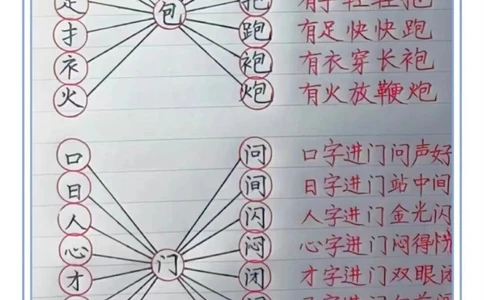 足 包 抱 有手轻轻抱
扌 跑 有足快快跑
衤 袍 有衣穿长袍
火 炮 有火放鞭炮
口 问 口字进门问声好
日 间 日字进门站中间
人 闪 人字进门金光闪
心 闷 心字进门闷得慌
门
才 闭 才字进门双眼闭